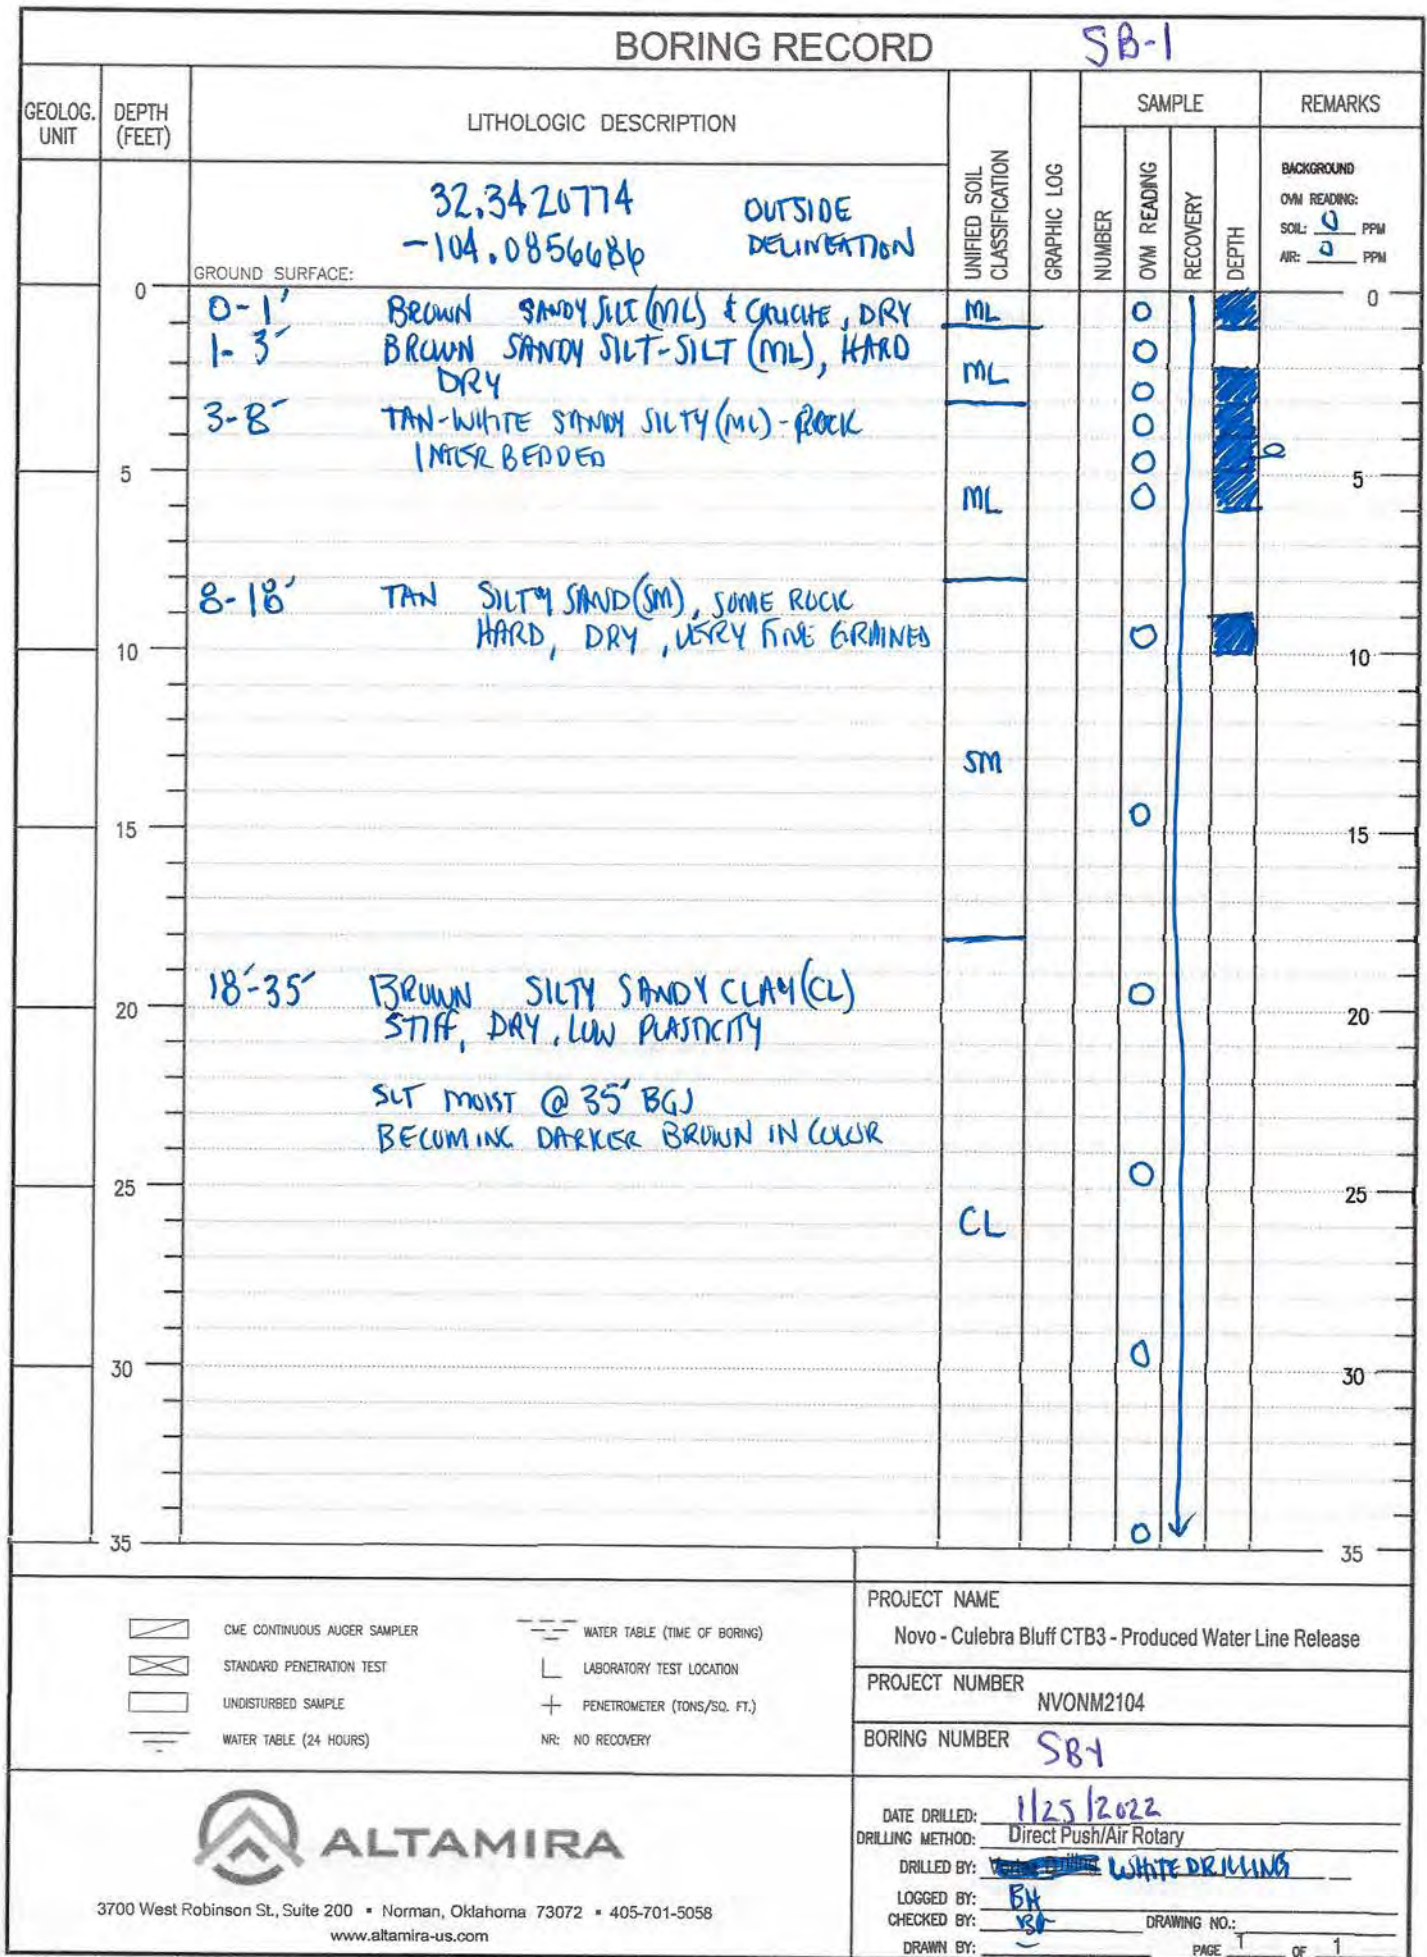 BORING RECORD SB-1
GEOLOG. UNIT
DEPTH (FEET)
LITHOLOGIC DESCRIPTION
UNIFIED SOIL CLASSIFICATION
GRAPHIC LOG
SAMPLE
NUMBER
OVM READING
RECOVERY
DEPTH
REMARKS
BACKGROUND
OVM READING:
SOIL: 0 PPM
AIR: 0 PPM
32.3420774 OUTSIDE
-104.0856686 DELINEATION
GROUND SURFACE:
0 0
0-1' BROWN SANDY SILT (ML) & CALICHE, DRY ML 0
1-3' BROWN SANDY SILT-SILT (ML), HARD 0
DRY ML 0
3-8' TAN-WHITE SANDY SILTY (ML) - ROCK 0
INTERBEDDED 0
5 5
ML 0
8-18' TAN SILTY SAND (SM), SOME ROCK
HARD, DRY, VERY FINE GRAINED 0
10 10
SM
0
15 15
18'-35' BROWN SILTY SANDY CLAY (CL) 0
20 20
STIFF, DRY, LOW PLASTICITY
SLT MOIST @ 35' BGS
BECOMING DARKER BROWN IN COLOR
0
25 25
CL
0
30 30
0
35 35
CME CONTINUOUS AUGER SAMPLER
STANDARD PENETRATION TEST
UNDISTURBED SAMPLE
WATER TABLE (24 HOURS)
WATER TABLE (TIME OF BORING)
LABORATORY TEST LOCATION
PENETROMETER (TONS/SQ. FT.)
NR: NO RECOVERY
PROJECT NAME
Novo - Culebra Bluff CTB3 - Produced Water Line Release
PROJECT NUMBER
NVONM2104
BORING NUMBER SB-1
ALTAMIRA
3700 West Robinson St., Suite 200 ▪ Norman, Oklahoma 73072 ▪ 405-701-5058
www.altamira-us.com
DATE DRILLED: 1/25/2022
DRILLING METHOD: Direct Push/Air Rotary
DRILLED BY: WHITE DRILLING
LOGGED BY: BH
CHECKED BY:
DRAWING NO.:
DRAWN BY:
PAGE 1 OF 1